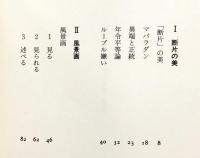 I 断片の美
「断片」の美 8
マバラダン 18
異端と正統 23
年令平等論 32
ルーブル嫌い 40
II 風景画
風景画
1 見る 46
2 見られる 62
3 述べる 82